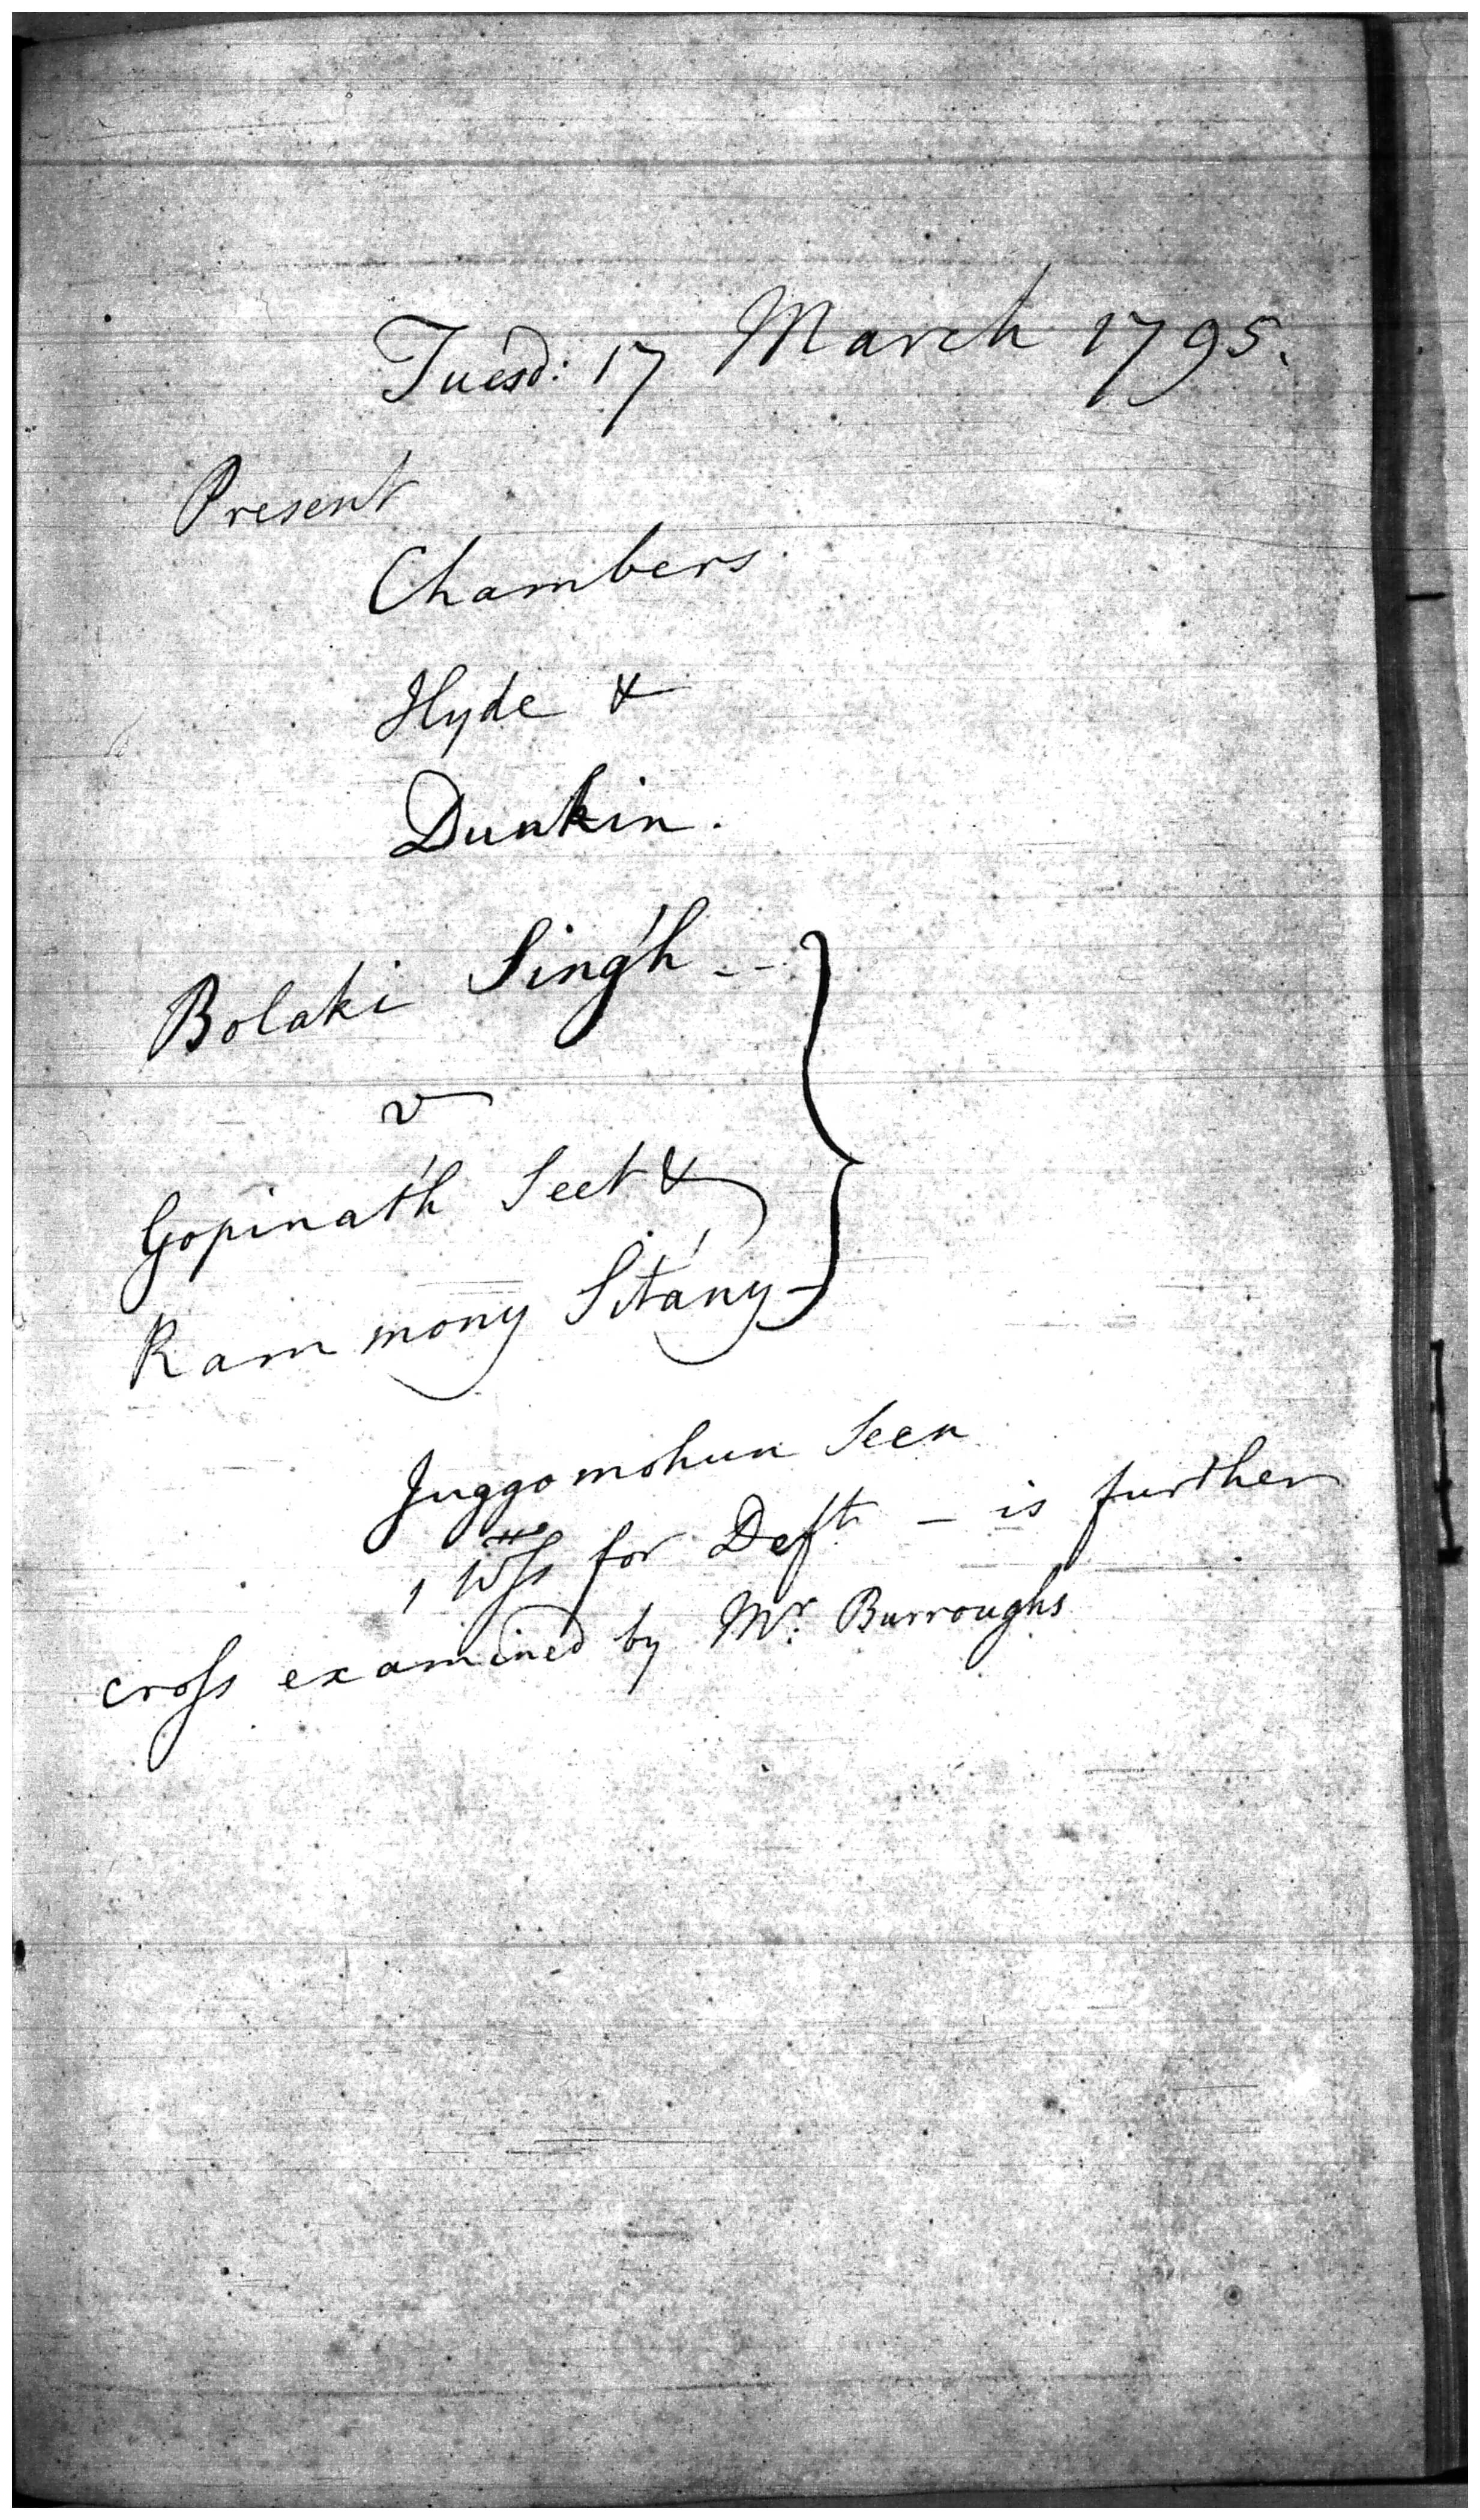 Tuesd: 17 March 1795.
Present
Chambers
Hyde &
Dunkin.
Bolaki Sing'h --
v
Gopinat'h Seet &
Rammony Sitány
Juggomohun Seen
1 Wss for Deft - is further
cross examined by Mr. Burroughs